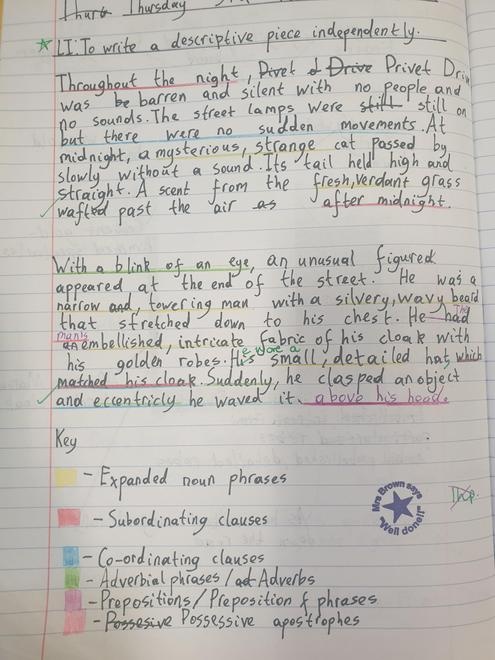 Thurs Thursday
LI: To write a descriptive piece independently.
Throughout the night, Privet d Drive Privet Driv
was be barren and silent with no people and
no sounds. The street lamps were still still on
but there were no sudden movements. At
midnight, a mysterious, strange cat passed by
slowly without a sound. Its tail held high and
straight. A scent from the fresh, verdant grass
wafted past the air as after midnight.
With a blink of an eye, an unusual figured
appeared at the end of the street. He was a
narrow and, towering man with a silvery, wavy beard
that stretched down to his chest. He had The
man's an embellished, intricate fabric of his cloak with
his golden robes. He wore a small, detailed hat, which
matched his cloak. Suddenly, he clasped an object
and eccentricly he waved it above his head.
Key
- Expanded noun phrases
- Subordinating clauses
- Co-ordinating clauses
- Adverbial phrases / ad Adverbs
- Prepositions / Preposition f phrases
- Possesive Possessive apostrophes
Mrs Brown says
"Well done!"